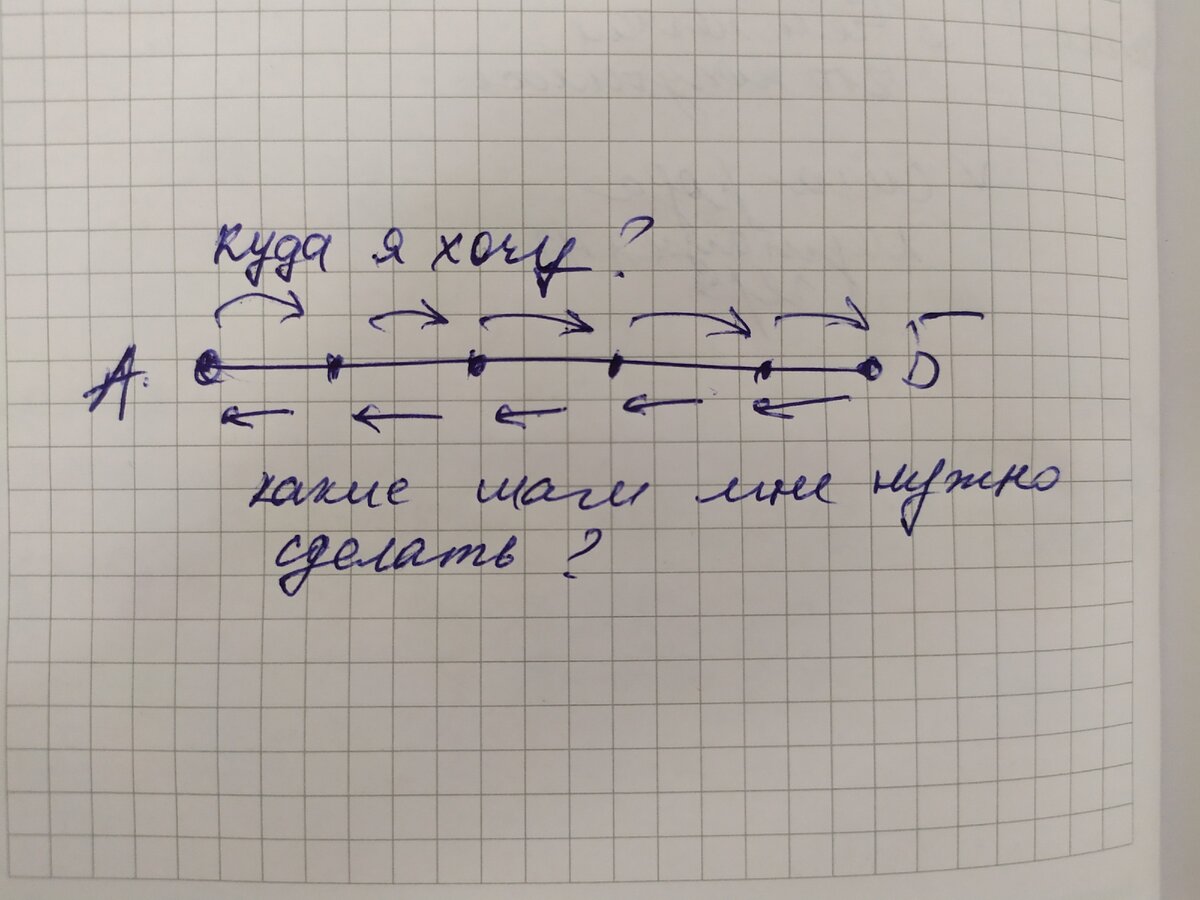 куда я хочу?
А. Б
какие шаги мне нужно
сделать?